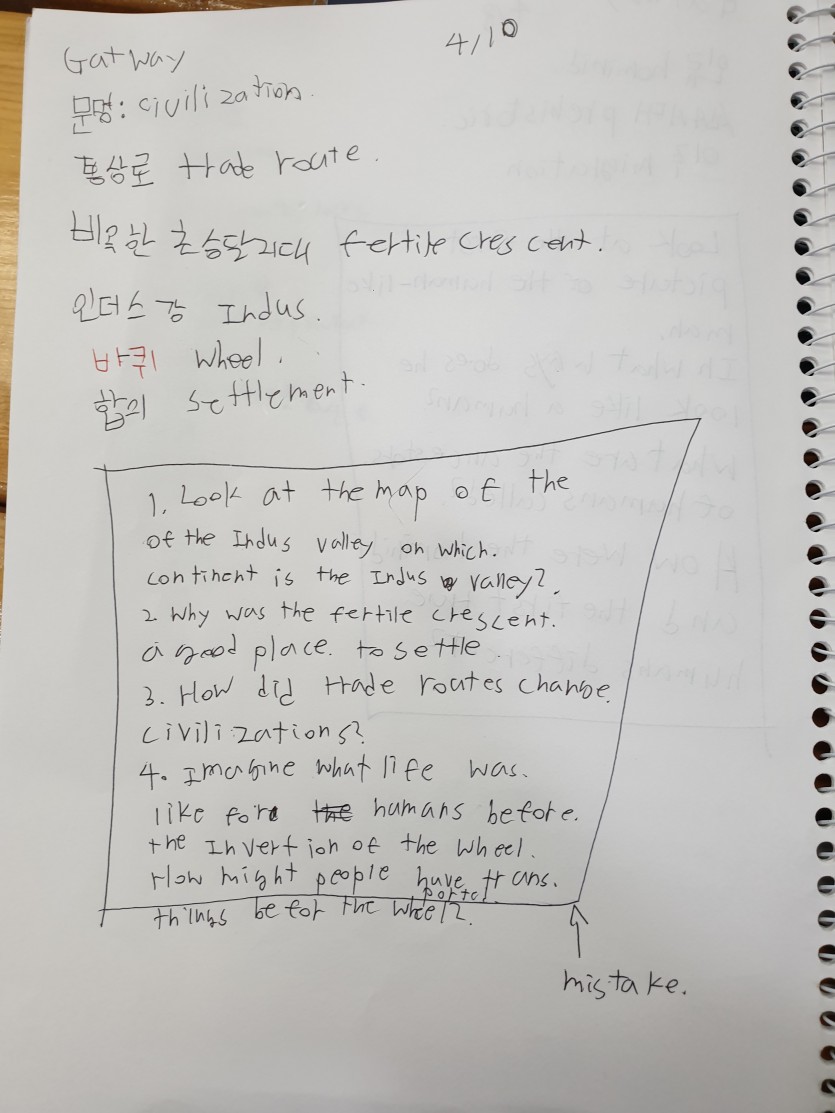 4/10
Gatway
문명: civilization.
통상로 trade route.
비옥한 초승달지대 fertile crescent.
인더스 강 Indus.
바퀴 wheel.
합의 settlement.
1. Look at the map of the
of the Indus valley on which.
continent is the Indus valley?.
2. Why was the fertile crescent.
a good place. to settle.
3. How did trade routes change.
civilizations?
4. Imagine what life was.
like for the humans before.
the Invertion of the wheel.
How might people have trans.
ported
things befor the wheel?.
mistake.